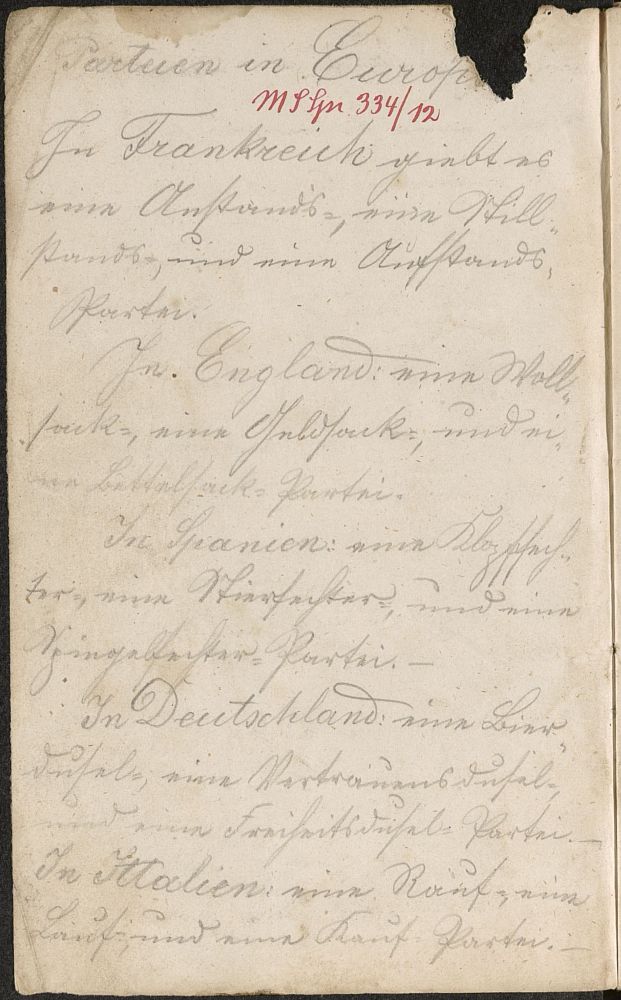 Parteien in Europa
MS Gpr 334/12
In Frankreich giebt es
eine Anstands=, eine Still„
stands=, und eine Aufstands„
Partei.
In England: eine Woll„
sack=, eine Geldsack=, und ei„
ne Bettelsack= Partei.
In Spanien: eine Klopffech„
ter=, eine Stierfechter=, und eine
Spiegelfechter= Partei. —
In Deutschland: eine Bier„
dusel=, eine Vertrauensdusel=,
und eine Freiheitsdusel= Partei. —
In Ittalien: eine Rauf=, eine
Lauf=, und eine Kauf= Partei. —